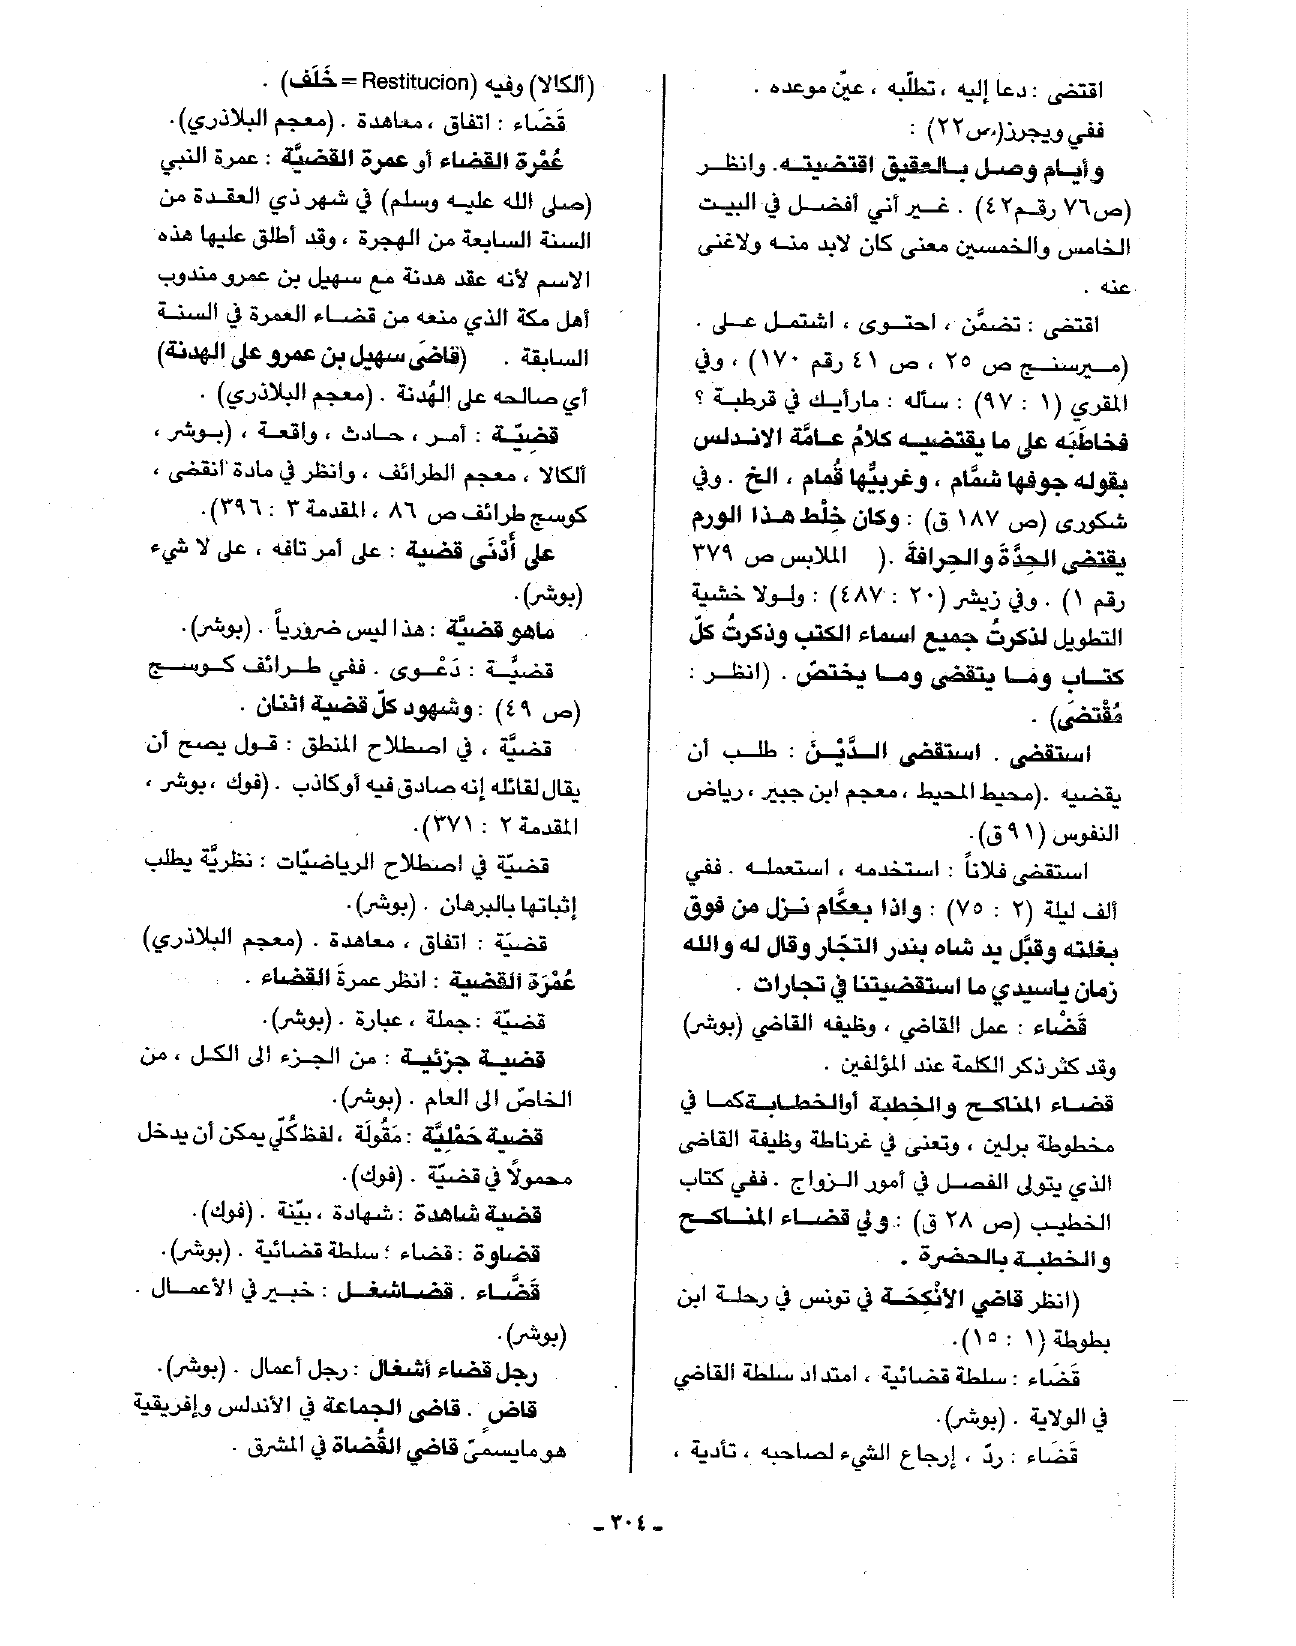 اقتضى : دعا إليه ، تطلّبه ، عيّن موعده .
ففي ويجرز (ص٢٢) :
وأيام وصل بالعقيق اقتضيته. وانظر
(ص٧٦ رقم٤٢) . غير أني أفضل في البيت
الخامس والخمسين معنى كان لابد منه ولاغنى
عنه .
اقتضى : تضمَّن ، احتوى ، اشتمل على .
(ميرسنج ص ٢٥ ، ص ٤١ رقم ١٧٠) ، وفي
المقري (١ : ٩٧) : سأله : مارأيك في قرطبة ؟
فخاطَبَه على ما يقتضيه كلامُ عامَّة الاندلس
بقوله جوفها شمَّام ، وغربيُّها قُمام ، الخ . وفي
شكورى (ص ١٨٧ ق) : وكان خِلْط هذا الورم
يقتضى الحِدَّةَ والحرافةَ .( الملابس ص ٣٧٩
رقم ١) . وفي زيشر (٢٠ : ٤٨٧) : ولولا خشية
التطويل لذكرتُ جميع اسماء الكتب وذكرتُ كلّ
كتاب وما يتقضى وما يختصّ . (انظر :
مُقْتضَى) .
استقضى . استقضى الدَّيْنَ : طلب أن
يقضيه .(محيط المحيط ، معجم ابن جبير ، رياض
النفوس (٩١ ق).
استقضى فلاناً : استخدمه ، استعمله . ففي
ألف ليلة (٢ : ٧٥) : واذا بعكَّام نزل من فوق
بغلته وقبَّل يد شاه بندر التجّار وقال له والله
زمان ياسيدي ما استقضيتنا في تجارات .
قَضْاء : عمل القاضي ، وظيفه القاضي (بوشر)
وقد كثر ذكر الكلمة عند المؤلفين .
قضاء المناكح والخطبة أوالخطابة كما في
مخطوطة برلين ، وتعنى في غرناطة وظيفة القاضي
الذي يتولى الفصل في أمور الزواج . ففي كتاب
الخطيب (ص ٢٨ ق) : ولي قضاء المناكح
والخطبة بالحضرة .
(انظر قاضي الأنْكِحَة في تونس في رحلة ابن
بطوطة (١ : ١٥).
قَضَاء : سلطة قضائية ، امتداد سلطة القاضي
في الولاية . (بوشر).
قَضَاء : ردّ ، إرجاع الشيء لصاحبه ، تأدية ،
(ألكالا) وفيه (Restitucion = خَلَف) .
قَضَاء : اتفاق ، معاهدة . (معجم البلاذري).
عُمْرة القضاء أو عمرة القضيَّة : عمرة النبي
(صلى الله عليه وسلم) في شهر ذي العقدة من
السنة السابعة من الهجرة ، وقد أطلق عليها هذه
الاسم لأنه عقد هدنة مع سهيل بن عمرو مندوب
أهل مكة الذي منعه من قضاء العمرة في السنة
السابقة . (قاضَى سهيل بن عمرو على الهدنة)
أي صالحه على الهُدنة . (معجم البلاذري) .
قضيّة : أمر ، حادث ، واقعة ، (بوشر ،
ألكالا ، معجم الطرائف ، وانظر في مادة انقضى ،
كوسج طرائف ص ٨٦ ، المقدمة ٣ : ٣٩٦).
على أدْنَى قضية : على أمر تافه ، على لا شيء
(بوشر).
ماهو قضيَّة : هذا ليس ضرورياً . (بوشر).
قضيَّة : دَعْوى . ففي طرائف كوسج
(ص ٤٩) : وشهود كلّ قضية اثنان .
قضيَّة ، في اصطلاح المنطق : قول يصح أن
يقال لقائله إنه صادق فيه أو كاذب . (فوك ، بوشر ،
المقدمة ٢ : ٣٧١).
قضيّة في اصطلاح الرياضيّات : نظريَّة يطلب
إثباتها بالبرهان . (بوشر).
قضيّة : اتفاق ، معاهدة . (معجم البلاذري)
عُمْرَة القضية : انظر عمرةَ القضاء .
قضيّة : جملة ، عبارة . (بوشر).
قضية جزئية : من الجزء الى الكل ، من
الخاصّ الى العام . (بوشر).
قضية حَمْليَّة : مَقُولَة ، لفظ كُلّي يمكن أن يدخل
محمولاً في قضيّة . (فوك).
قضية شاهدة : شهادة ، بيّنة . (فوك).
قضاوة : قضاء ؛ سلطة قضائية . (بوشر).
قَضَّاء . قضاشغل : خبير في الأعمال .
(بوشر).
رجل قضاء أشغال : رجل أعمال . (بوشر).
قاضٍ . قاضى الجماعة في الأندلس وإفريقية
هو مايسمىّ قاضي القُضاة في المشرق .
ـ ٣٠٤ ـ